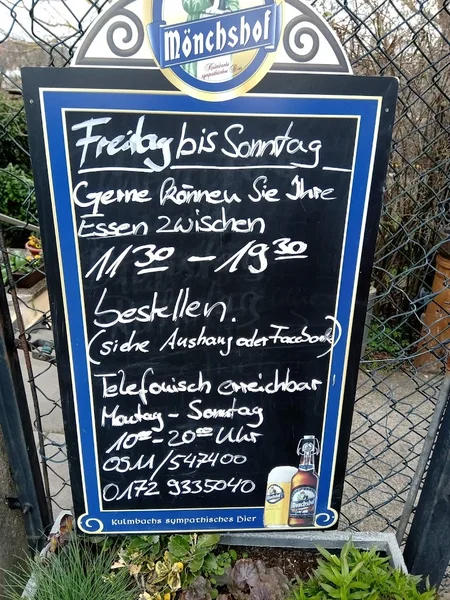 Mönchshof
Kulmbachs
sympathisches Bier
Freitag bis Sonntag
Gerne können Sie Ihre
Essen zwischen
11 30 - 19 30
bestellen.
(siehe Aushang oder Facebook)
Telefonisch erreichbar
Montag - Sonntag
10 00 - 20 00 Uhr
0511/547400
0172 9335040
Mönchshof
Kulmbachs sympathisches Bier